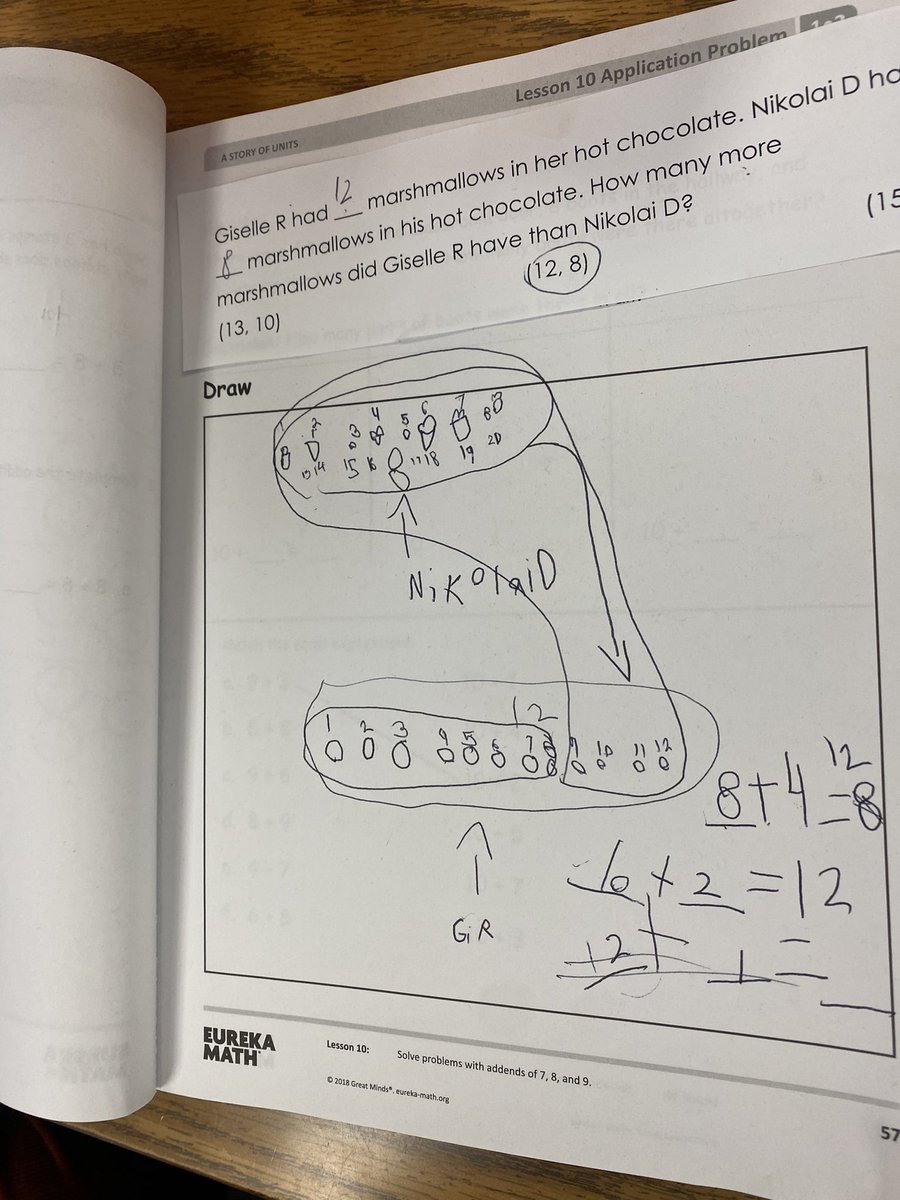 Lesson 10 Application Problem
A STORY OF UNITS
Giselle R had 12 marshmallows in her hot chocolate. Nikolai D ha
8 marshmallows in his hot chocolate. How many more
marshmallows did Giselle R have than Nikolai D? (15
(12, 8)
(13, 10)
Draw
1 2 3 4 5 6 7 8
13 14 15 16 17 18 19 20
8
Nikolai D
12
1 2 3 4 5 6 7 8 9 10 11 12
12
8+4=8
10+2=12
12 + 1 =
GiR
EUREKA
MATH
Lesson 10: Solve problems with addends of 7, 8, and 9.
© 2018 Great Minds®. eureka-math.org
57